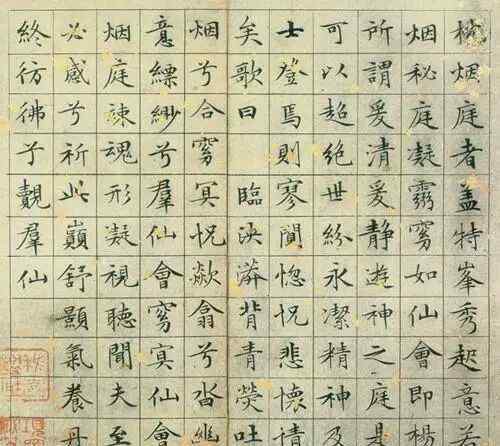 枕烟庭者盖特峯秀起意
烟秘庭凝靈窅如仙會即楊
所謂爰清爰靜遊神之庭是
可以超絕世紛永潔精神及
士登焉則寥闃惚怳悲懷情
矣歌曰臨泱漭背青熒吐
烟兮合窅冥怳欻翕兮沓
意縹緲兮羣仙會窅冥仙會
烟庭竦魂形凝視聽聞夫至
必感兮祈此巔舒顥氣養丹
終彷彿覿羣仙